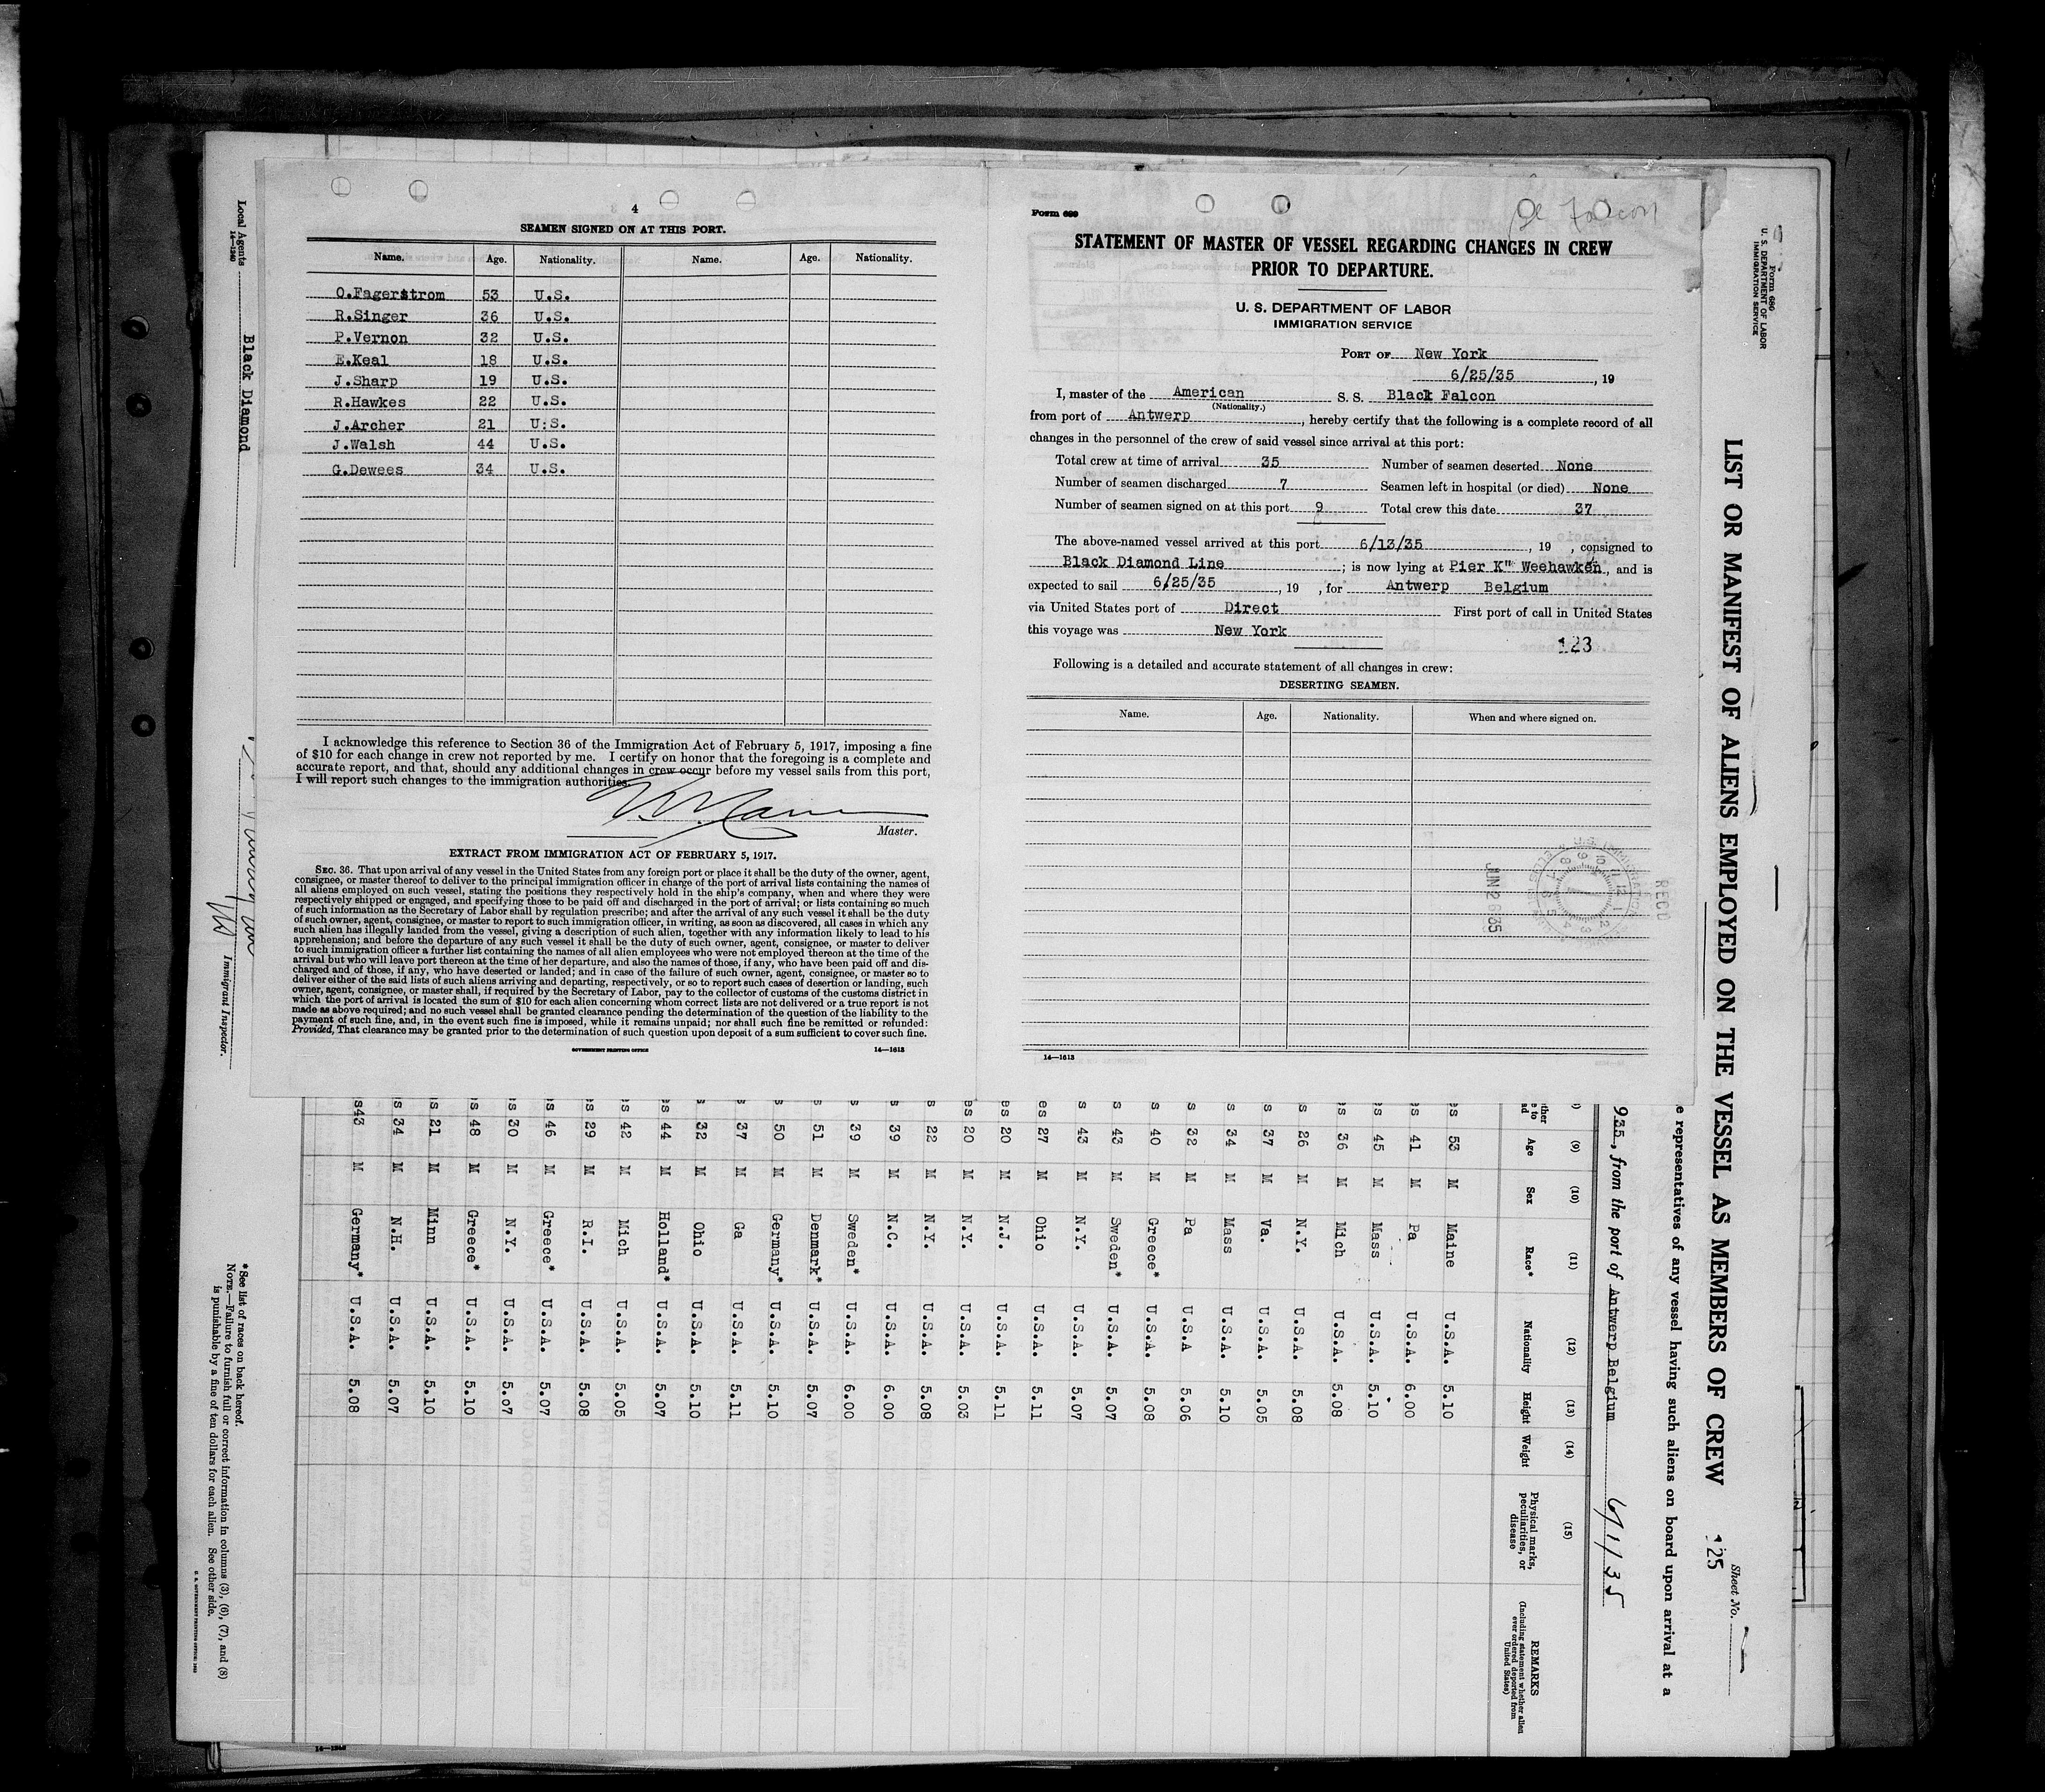 4
SEAMEN SIGNED ON AT THIS PORT.
Name. Age. Nationality. Name. Age. Nationality.
O.Fagerstrom 53 U.S.
R.Singer 36 U.S.
P.Vernon 32 U.S.
E.Keal 18 U.S.
J.Sharp 19 U.S.
R.Hawkes 22 U.S.
J.Archer 21 U:S.
J.Walsh 44 U.S.
G.Dewees 34 U.S.
I acknowledge this reference to Section 36 of the Immigration Act of February 5, 1917, imposing a fine
of $10 for each change in crew not reported by me. I certify on honor that the foregoing is a complete and
accurate report, and that, should any additional changes in crew occur before my vessel sails from this port,
I will report such changes to the immigration authorities.
Master.
EXTRACT FROM IMMIGRATION ACT OF FEBRUARY 5, 1917.
SEC. 36. That upon arrival of any vessel in the United States from any foreign port or place it shall be the duty of the owner, agent,
consignee, or master thereof to deliver to the principal immigration officer in charge of the port of arrival lists containing the names of
all aliens employed on such vessel, stating the positions they respectively hold in the ship's company, when and where they were
respectively shipped or engaged, and specifying those to be paid off and discharged in the port of arrival; or lists containing so much
of such information as the Secretary of Labor shall by regulation prescribe; and after the arrival of any such vessel it shall be the duty
of such owner, agent, consignee, or master to report to such immigration officer, in writing, as soon as discovered, all cases in which any
such alien has illegally landed from the vessel, giving a description of such alien, together with any information likely to lead to his
apprehension; and before the departure of any such vessel it shall be the duty of such owner, agent, consignee, or master to deliver
to such immigration officer a further list containing the names of all alien employees who were not employed thereon at the time of the
arrival but who will leave port thereon at the time of her departure, and also the names of those, if any, who have been paid off and dis-
charged and of those, if any, who have deserted or landed; and in case of the failure of such owner, agent, consignee, or master so to
deliver either of the said lists of such aliens arriving and departing, respectively, or so to report such cases of desertion or landing, such
owner, agent, consignee, or master shall, if required by the Secretary of Labor, pay to the collector of customs of the customs district in
which the port of arrival is located the sum of $10 for each alien concerning whom correct lists are not delivered or a true report is not
made as above required; and no such vessel shall be granted clearance pending the determination of the question of the liability to the
payment of such fine, and, in the event such fine is imposed, while it remains unpaid; nor shall such fine be remitted or refunded:
Provided, That clearance may be granted prior to the determination of such question upon deposit of a sum sufficient to cover such fine.
GOVERNMENT PRINTING OFFICE 14—1613
Form 689
Falcon
STATEMENT OF MASTER OF VESSEL REGARDING CHANGES IN CREW
PRIOR TO DEPARTURE.
U. S. DEPARTMENT OF LABOR
IMMIGRATION SERVICE
PORT OF New York
6/25/35, 19
I, master of the American S. S. Black Falcon
(Nationality.)
from port of Antwerp, hereby certify that the following is a complete record of all
changes in the personnel of the crew of said vessel since arrival at this port:
Total crew at time of arrival 35 Number of seamen deserted None
Number of seamen discharged 7 Seamen left in hospital (or died) None
Number of seamen signed on at this port 9 Total crew this date 37
The above-named vessel arrived at this port 6/13/35, 19 , consigned to
Black Diamond Line; is now lying at Pier K" Weehawken, and is
expected to sail 6/25/35, 19 , for Antwerp Belgium
via United States port of Direct First port of call in United States
this voyage was New York
123
Following is a detailed and accurate statement of all changes in crew:
DESERTING SEAMEN.
Name. Age. Nationality. When and where signed on.
RECD
JUN 26 35
14—1613
Form 680
U. S. DEPARTMENT OF LABOR
IMMIGRATION SERVICE
Sheet No.
LIST OR MANIFEST OF ALIENS EMPLOYED ON THE VESSEL AS MEMBERS OF CREW 125
representatives of any vessel having such aliens on board upon arrival at a
935, from the port of Antwerp Belgium
(9) (10) (11) (12) (13) (14) (15)
Age Sex Race* Nationality Height Weight Physical marks, peculiarities, or disease REMARKS
(Including statement whether alien
ever ordered deported from
United States)
53 M Maine U.S.A. 5.10
41 M Pa U.S.A. 6.00
45 M Mass U.S.A. 5.10
36 M Mich U.S.A. 5.08
26 M N.Y. U.S.A. 5.08
37 M Va. U.S.A. 5.05
34 M Mass U.S.A. 5.10
32 M Pa U.S.A 5.06
40 M Greece* U.S.A. 5.08
43 M Sweden* U.S.A. 5.07
43 M N.Y. U.S.A. 5.07
es 27 M Ohio U.S.A. 5.11
es 20 M N.J. U.S.A. 5.11
es 20 M N.Y. U.S.A. 5.03
22 M N.Y. U.S.A. 5.08
39 M N.C. U.S.A. 6.00
39 M Sweden* U.S.A. 6.00
51 M Denmark* U.S.A. 5.07
50 M Germany* U.S.A. 5.10
37 M Ga U.S.A. 5.11
32 M Ohio U.S.A. 5.10
44 M Holland* U.S.A. 5.07
42 M Mich U.S.A. 5.05
29 M R.I. U.S.A. 5.08
46 M Greece* U.S.A. 5.07
30 M N.Y. U.S.A. 5.07
48 M Greece* U.S.A. 5.10
21 M Minn U.S.A. 5.10
34 M N.H. U.S.A. 5.07
s43 M Germany* U.S.A. 5.08
Local Agents Black Diamond
14—1240
Immigrant Inspector.
* See list of races on back hereof.
NOTE.—Failure to furnish full or correct information in columns (3), (6), (7), and (8)
is punishable by a fine of ten dollars for each alien. See other side.